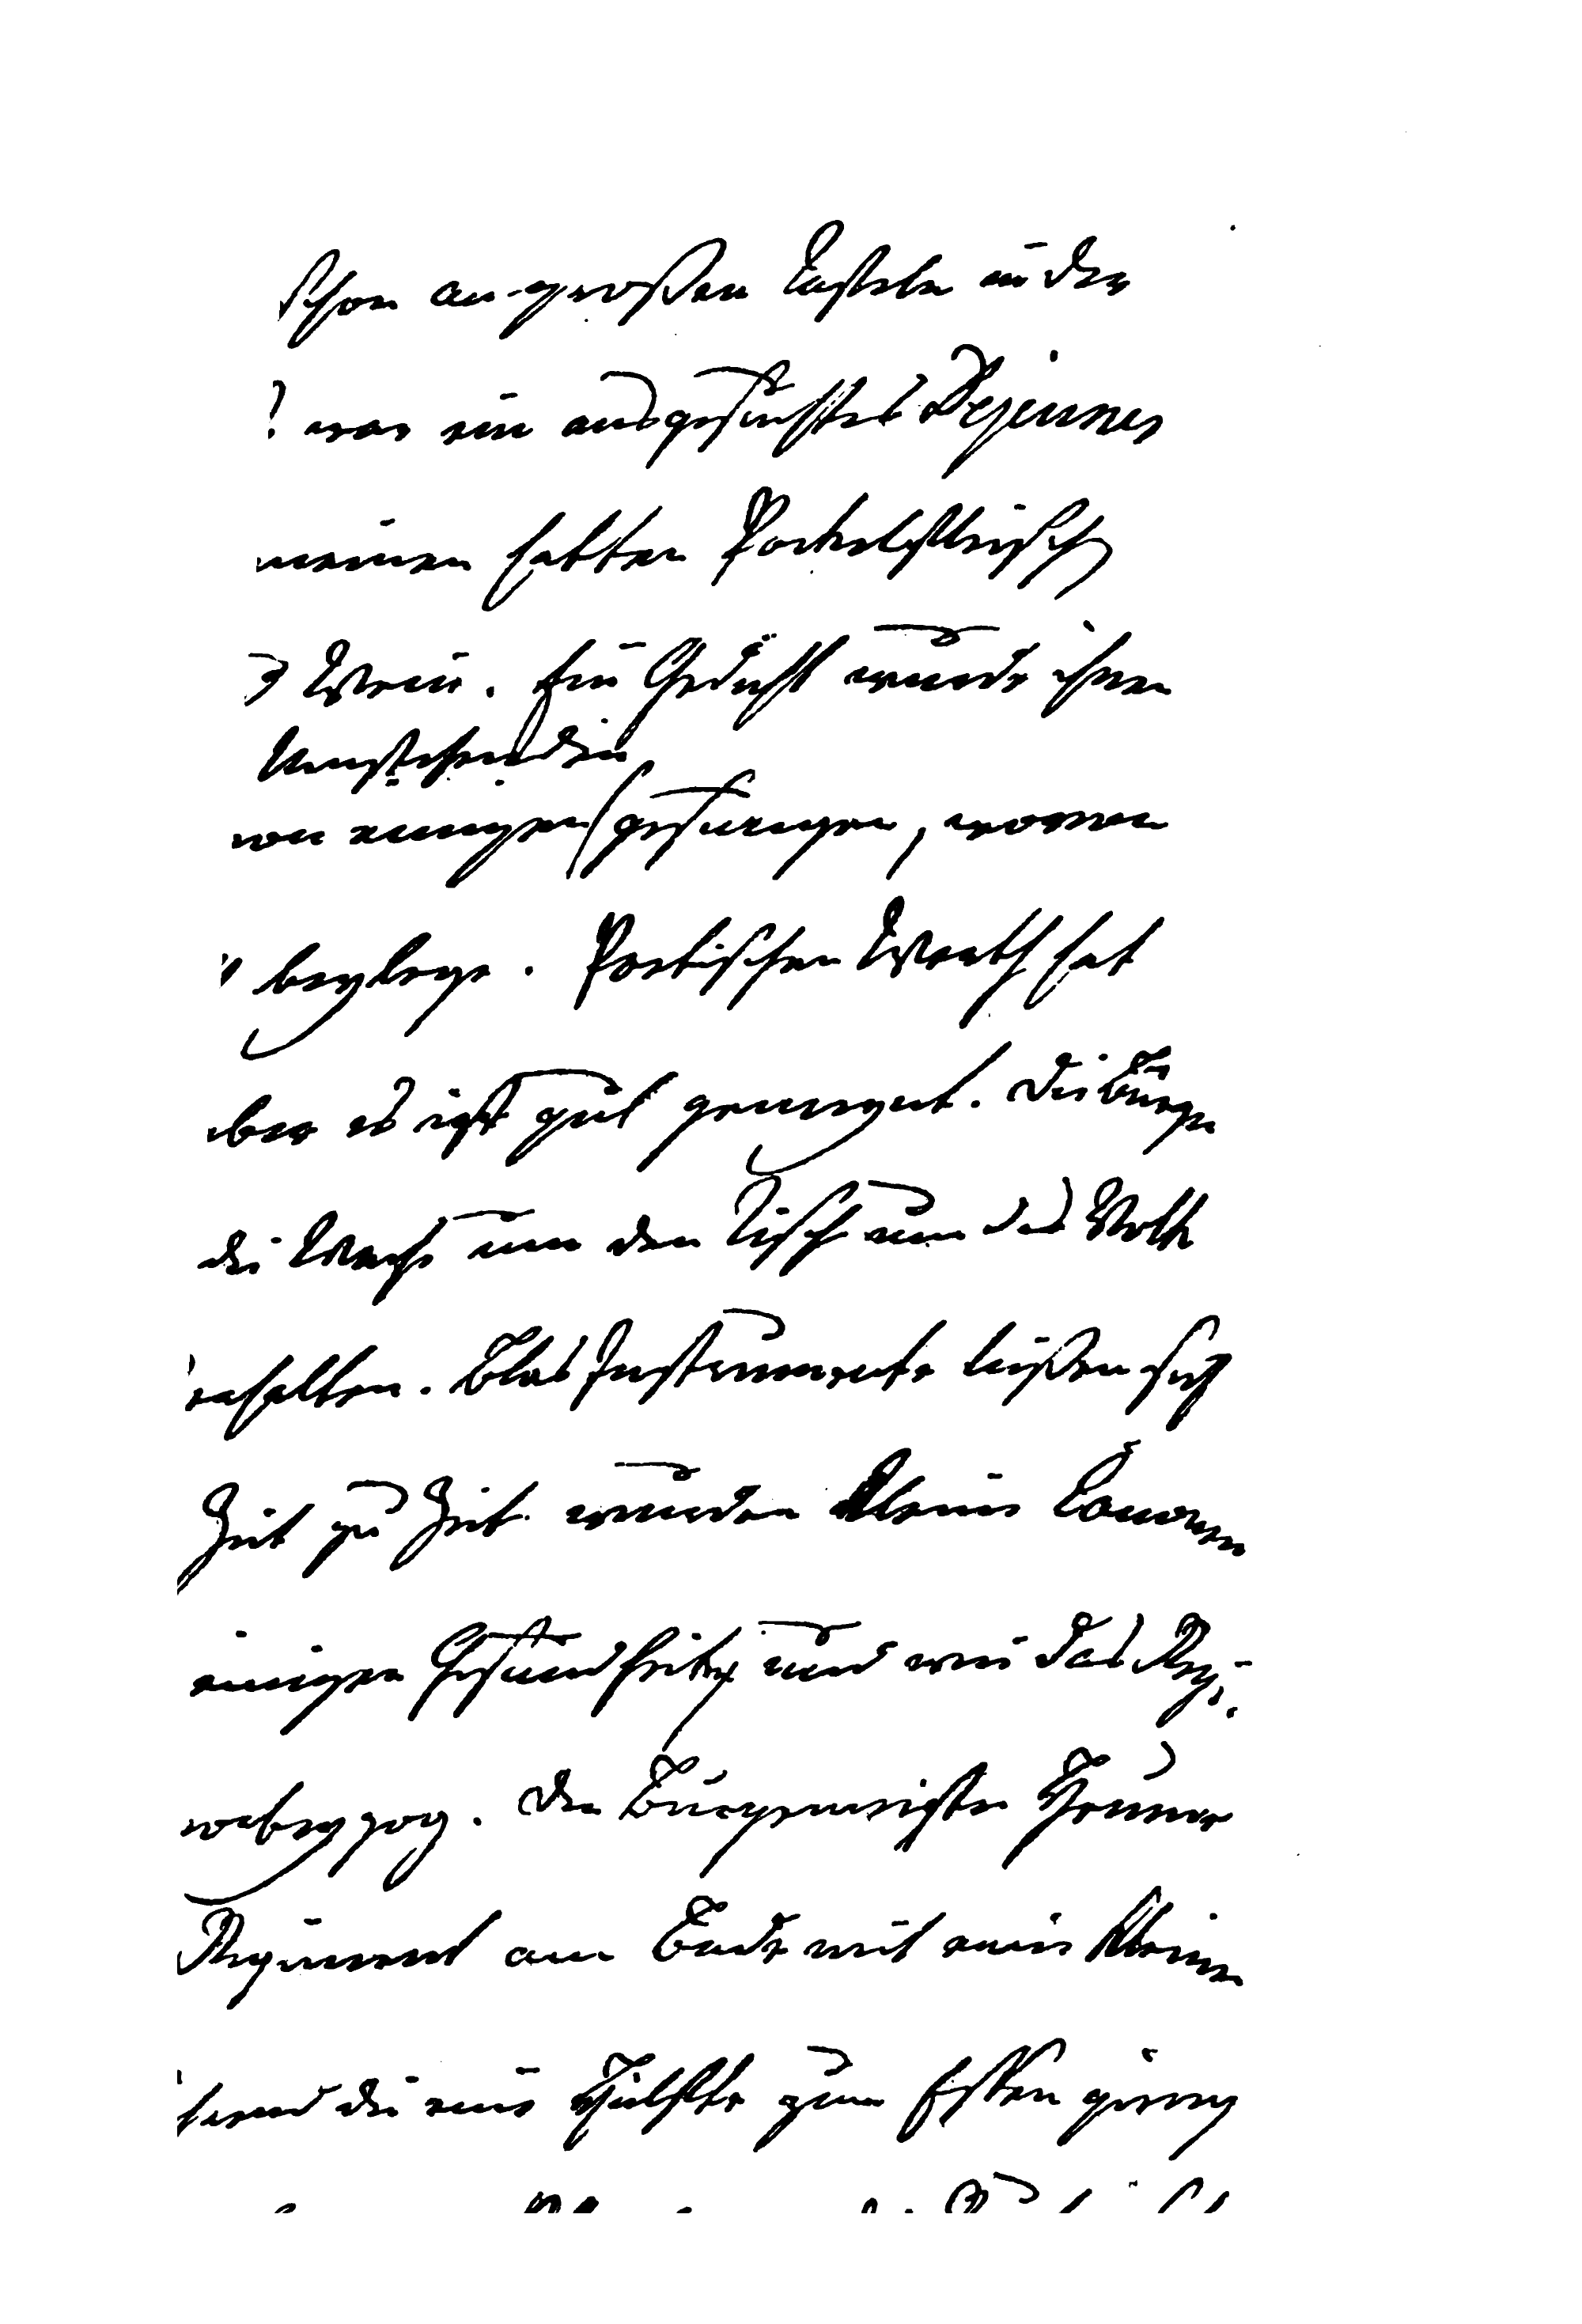 schon an großen Tafeln in der
war ein ausgesuchtes Dejeuner
meinen hatten Pockelfleisch
Wein. Ein Gedicht wurde ihnen
Umstehenden
von einigen gesungen, wovon
beylege. Poetischen Werth hat
ber es ist gut gemeynt. Die Bürger
die Wache um den Tisch um das Volk
enhalten. Blas Instrumente ließen sich
Zeit zu Zeit wurden kleine Canonen
einigen Gesundheiten und wie das Regi-
vorbeyzog. Der Bürgermeister
Regiment am Ende mit eine kleinen
die eine Hälfte zum Essen gieng